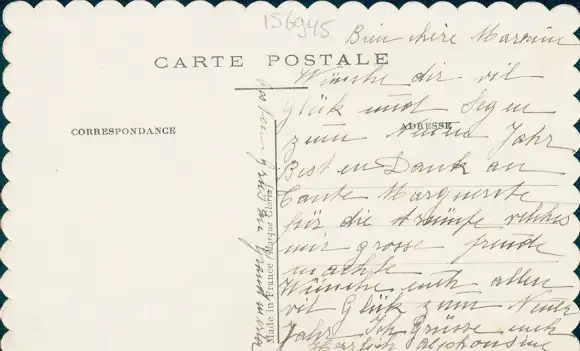 156945
Bien chère Marraine
CARTE POSTALE
Wünsche dir vil
Glük und Segen
zum Neuen Jahr
CORRESPONDANCE
ADRESSE
Besten Dank an
Tante Marguerite
für die strümfe velches
mir grosse freude
machte
Wünsche euch allen
vil Glük zum Neuen
Jahr Ich Grüsse euch
Herzlich alphonsine
Made in France (Marque Gloria)
besten Grus an